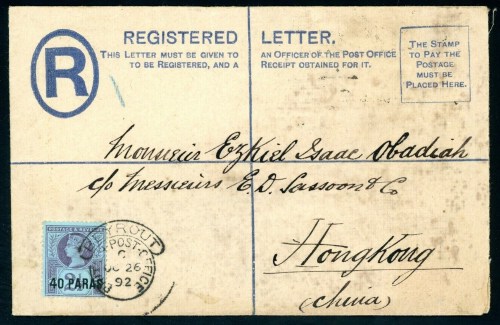 REGISTERED LETTER.
THIS LETTER MUST BE GIVEN TO AN OFFICER OF THE POST OFFICE
TO BE REGISTERED, AND A RECEIPT OBTAINED FOR IT.
R
THE STAMP
TO PAY THE
POSTAGE
MUST BE
PLACED HERE.
Monsieur Ezkiel Isaac Obadiah
c/o Messieurs E. D. Sassoon & Co
HongKong
(China)
BEYROUT
BRITISH POST-OFFICE
C
OC 26
92
POSTAGE & REVENUE
40 PARAS